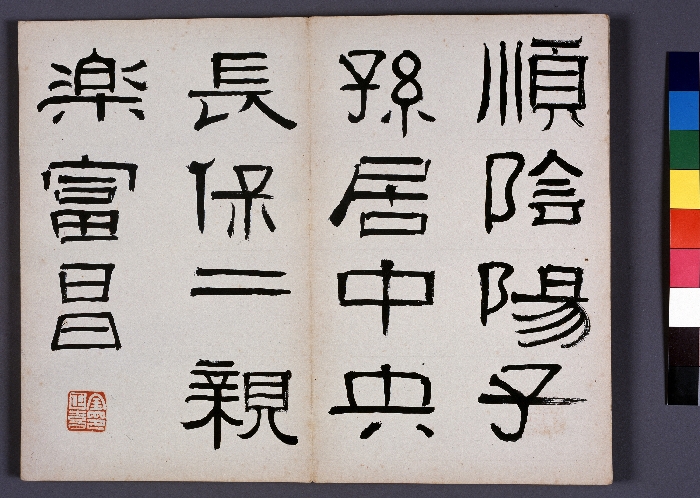 順陰陽子
孫居中央
長保二親
楽富昌